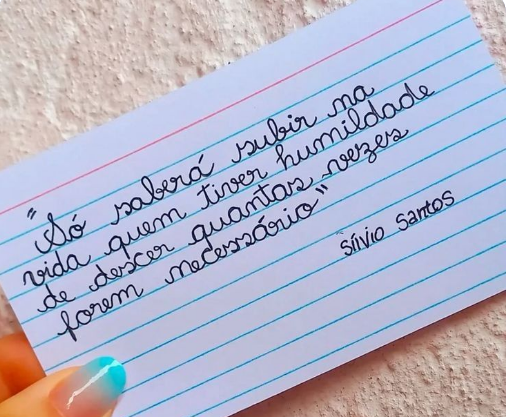 "Só saberá subir na
vida quem tiver humildade
de descer quantas vezes
forem necessário"
Sílvio Santos